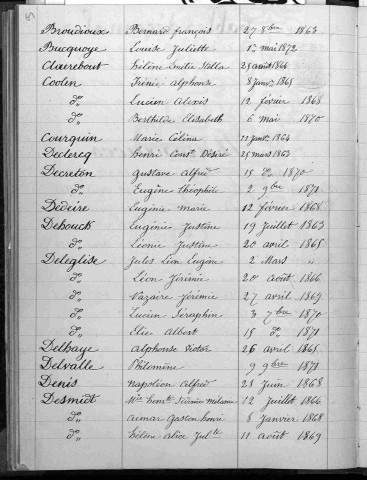 Broudioux Bernard françois 27 8bre 1863
Bucquoye Louise Juliette 1er mai 1872
Claerebout hélène Emilie Stella 25 août 1866
Coolen Irénée alphonse 8 Janv. 1865
do,, Lucien Alexis 12 février 1868
do,, Berthilde Elisabeth 6 mai 1870
Courquin Marie Célina 11 Janvr. 1864
Declercq henri Const. Désiré 25 mars 1863
Decreton Gustave Alfred 15 do,, 1870
do,, Eugène théophile 2 9bre 1871
Dedeire Eugénie marie 12 février 1868
Dehouck Eugénie Justine 19 Juillet 1863
do,, Léonie Justine 20 avril 1865
Deleglise Jules Léon Eugène 2 Mars ,,
do,, Léon Jérémie 20 août 1866
do,, Nazaire Jérémie 27 avril 1869
do,, Lucien Séraphin 3 7bre 1870
do,, Elie Albert 15 do,, 1871
Delhaye Alphonse Victor 26 avril 1865
Delvalle Philomine 9 9bre 1871
Denis Napoléon Alfred 25 Juin 1868
Desmidt 12 Juillet 1866
do,, aimar Gaston henri 8 Janvier 1868
do,, hélène alice Julte 11 août 1869